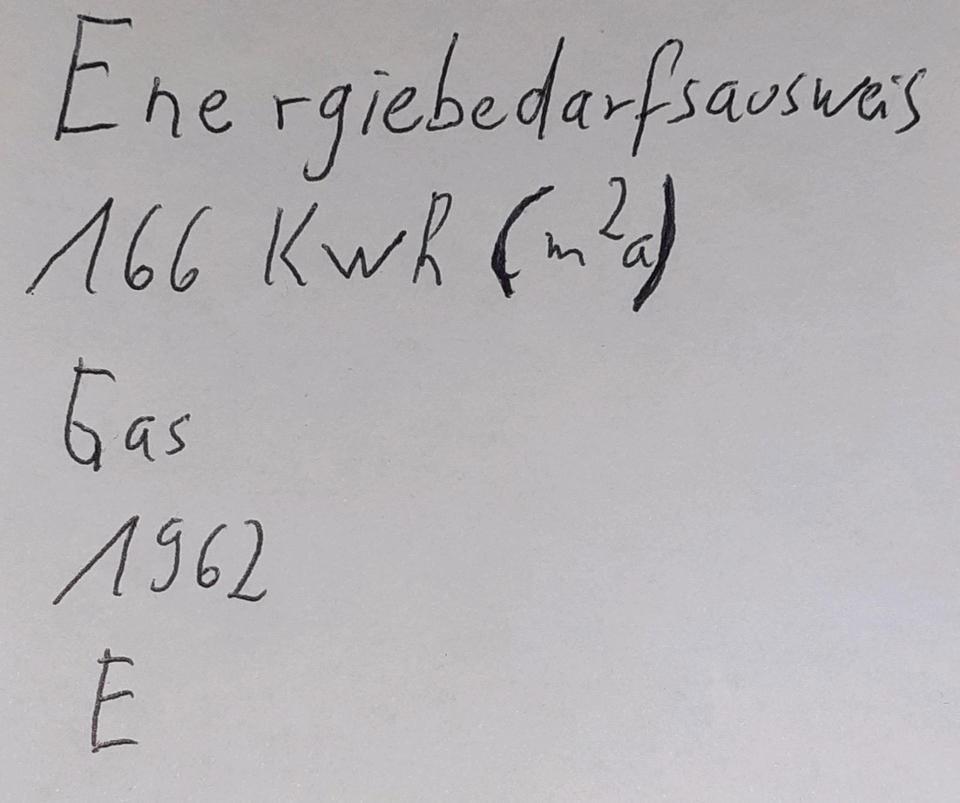 Energiebedarfsausweis
166 Kwh (m²a)
Gas
1962
E